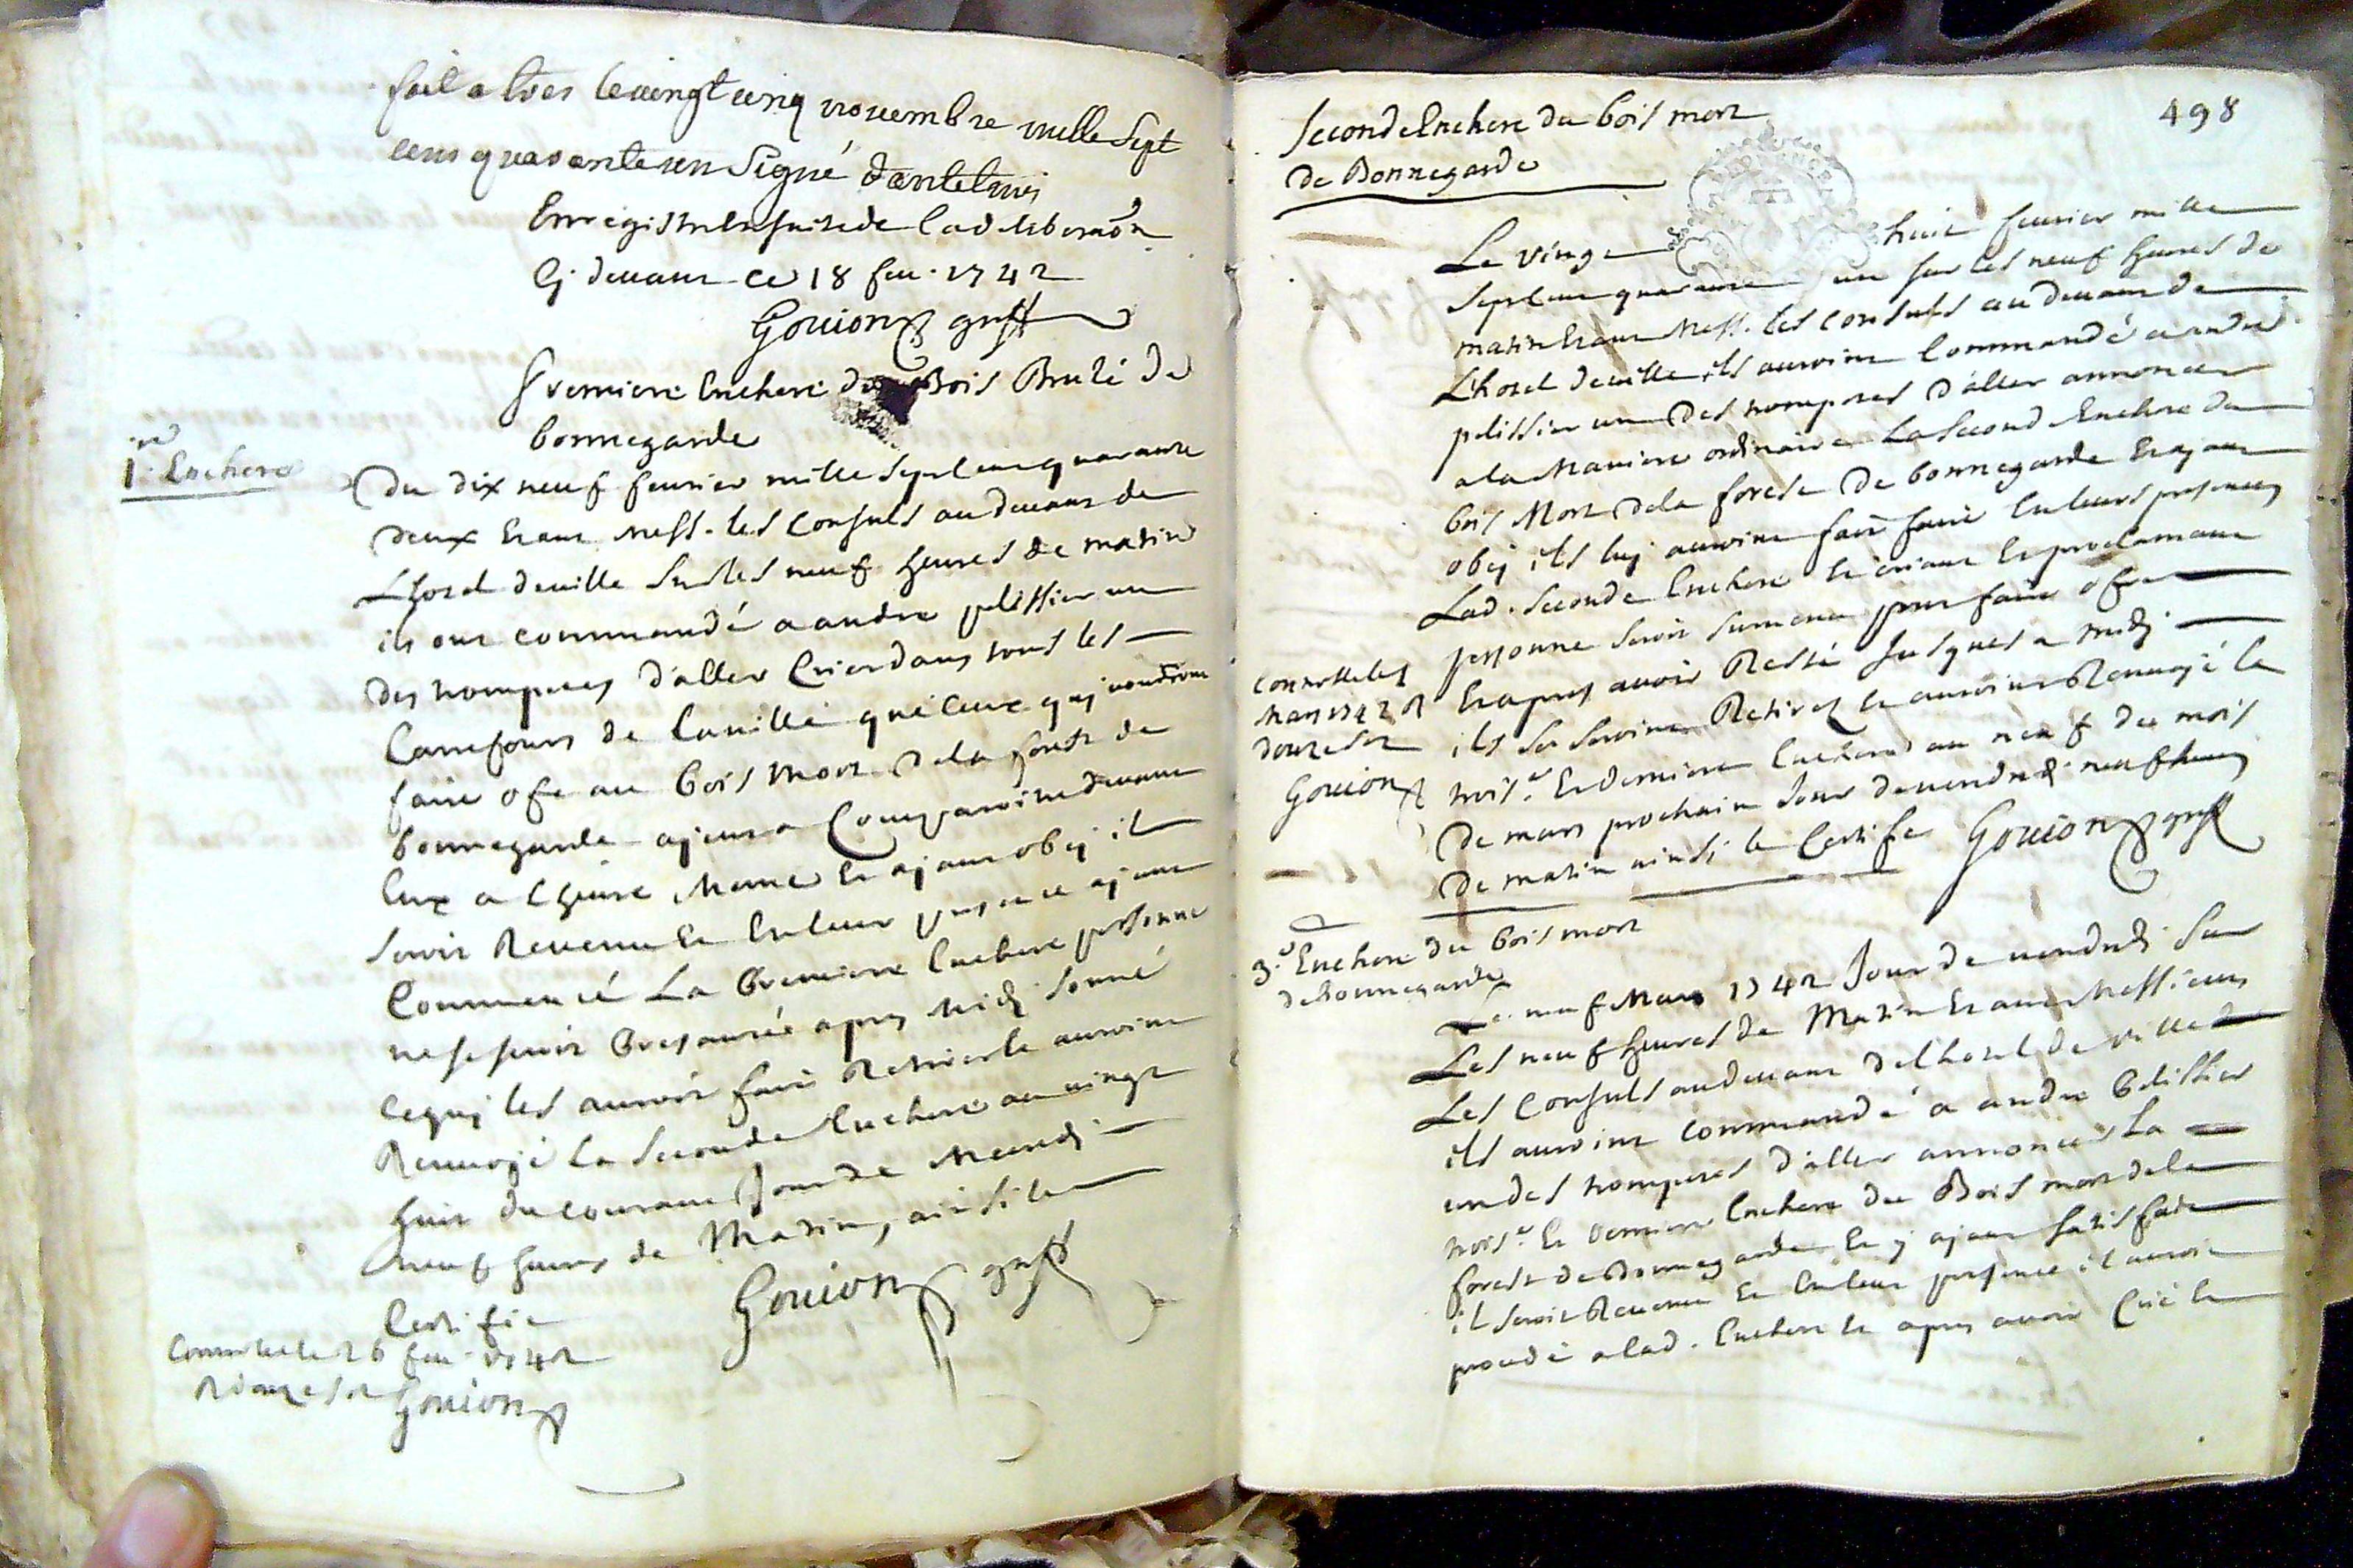 fait a lres le vingt cinq novembre mille sept
cens quarante un Signé dantelmi
Enregistré en suite de lad deliberaõn
Cy devant ce 18 feu. 1742
Gouion greff
Premiere Enchere du Bois Brulé de
bonnegarde
1.re Enchere
Du dix neuf feurier mille sept cent quarante
deux Etant Mess. les Consuls au deuant de
Lhotel deuille Sur les neuf heures de matin
ils ont commandé a andre pelissier un
des trompetes d'aller Crier dans tous les
Carrefours de la uille que ceux quj uoudront
faire ofre au bois mort de la forest de
bonnegarde ajent a Comparoitre deuant
Eux a lheure Meme Et ajant obej il
seroit Reuenu Et En leur presence ajant
Commencé La Premiere Enchere personne
ne se seroit Presantée apres Midj sonné
ce quj les auroit fait Retirer Et auroint
Renuojé la Seconde Enchere au uingt
huit du courant Jour de Mecredj
neuf heures de Matin, ainsi le
Certifie
Gouion greff
Controllé le 26 feu. 1742
R douze sols Gouion
498
Seconde Enchere du bois mort
de Bonnegarde
Le vingt huit feurier mille
Sept cent quarante un sur les neuf heures de
matin Etant Mess. les Consuls au deuant de
Lhotel deuille ils auroint Commandé a andre
pelissier un des trompetes d'aller annoncer
a la Maniere ordinaire La Second Enchere du
bois Mort de la forest de bonnegarde Et ajant
obej ils luj auroint fait faire En leurs presences
Lad. Seconde Enchere Et criant Et proclamant
personne seroit suruenu pour faire ofre
Et apres auoir Resté Jusques a midj
ils se seroint Retirez Et auroint Renuojé la
trois.e Et derniere Enchere au neuf du mois
De mars prochain Jour de uendredj neuf heures
De matin ainsi le Certifie Gouion greff
Controllé le
Mars 1742 R
douze sols
Gouion
3.e Enchere du bois mort
de Bonnegarde
Le neuf Mars 1742 Jour de uendredj Sur
Les neuf heures de Matin Etant Messieurs
Les Consuls au deuant de lhotel de ville
ils auroint commandé a andre Pelissier
un des trompetes d'aller annoncer La
trois.e Et derniere Enchere du Bois mort de la
forest de Bonnegarde Et y ajant satisfait
il seroit Reuenu Et En leur presence il auroit
procedé a lad. Enchere Et apres auoir Crié Et